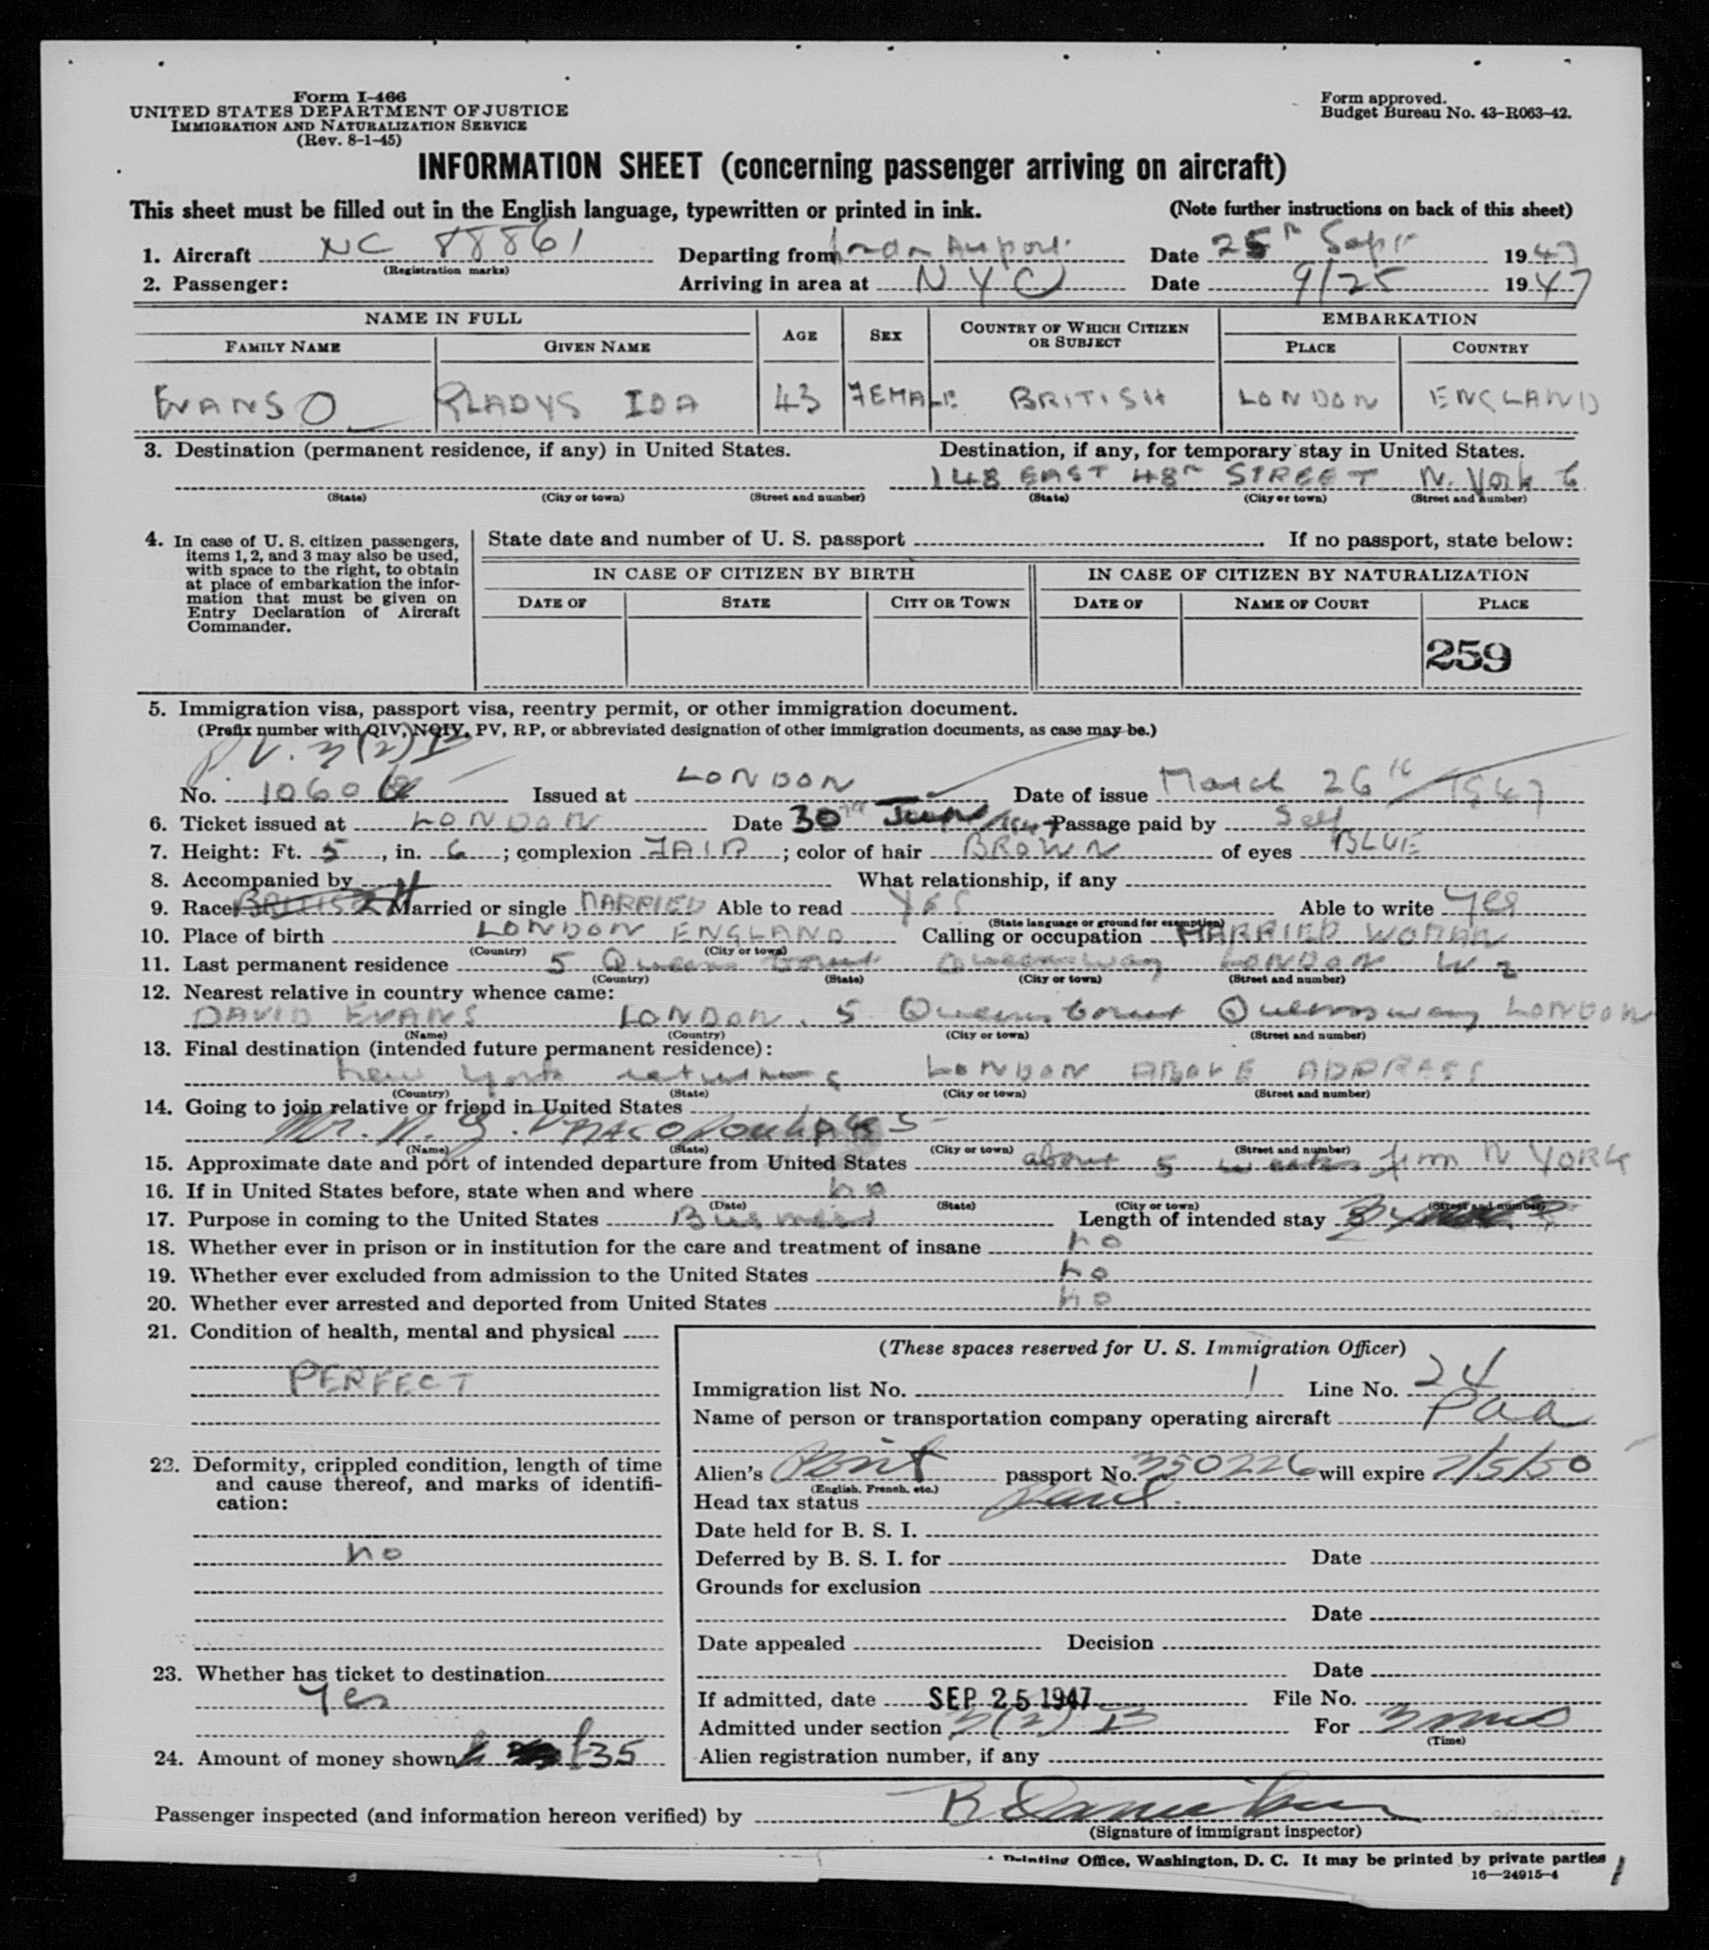 Form I-466
UNITED STATES DEPARTMENT OF JUSTICE
IMMIGRATION AND NATURALIZATION SERVICE
(Rev. 8-1-45)
Form approved.
Budget Bureau No. 43-R063-42.
INFORMATION SHEET (concerning passenger arriving on aircraft)
This sheet must be filled out in the English language, typewritten or printed in ink. (Note further instructions on back of this sheet)
1. Aircraft NC 88861 Departing from Airport Date 25th Sept 1947
(Registration marks)
2. Passenger: Arriving in area at NYC Date 9/25 1947
NAME IN FULL AGE SEX COUNTRY OF WHICH CITIZEN OR SUBJECT EMBARKATION
FAMILY NAME GIVEN NAME PLACE COUNTRY
EVANS GLADYS IDA 43 FEMALE BRITISH LONDON ENGLAND
3. Destination (permanent residence, if any) in United States. Destination, if any, for temporary stay in United States.
148 EAST 48th STREET N. York
(State) (City or town) (Street and number) (State) (City or town) (Street and number)
4. In case of U. S. citizen passengers, items 1, 2, and 3 may also be used, with space to the right, to obtain at place of embarkation the information that must be given on Entry Declaration of Aircraft Commander.
State date and number of U. S. passport If no passport, state below:
IN CASE OF CITIZEN BY BIRTH IN CASE OF CITIZEN BY NATURALIZATION
DATE OF STATE CITY OR TOWN DATE OF NAME OF COURT PLACE
259
5. Immigration visa, passport visa, reentry permit, or other immigration document.
(Prefix number with QIV, NQIV, PV, RP, or abbreviated designation of other immigration documents, as case may be.)
P.V. 3(2)B
No. 1060 Issued at LONDON Date of issue March 26th 1947
6. Ticket issued at LONDON Date 30th June 1947 Passage paid by Self
7. Height: Ft. 5, in. 6; complexion FAIR; color of hair BROWN of eyes BLUE
8. Accompanied by What relationship, if any
9. Race BRITISH Married or single MARRIED Able to read YES Able to write Yes
(State language or ground for exemption)
10. Place of birth LONDON ENGLAND Calling or occupation MARRIED WOMAN
(Country) (City or town)
11. Last permanent residence 5 Queens Court Queensway LONDON W 2
(Country) (State) (City or town) (Street and number)
12. Nearest relative in country whence came:
DAVID EVANS LONDON. 5 Queens Court Queensway LONDON
(Name) (Country) (City or town) (Street and number)
13. Final destination (intended future permanent residence):
New York returning LONDON ABOVE ADDRESS
(Country) (State) (City or town) (Street and number)
14. Going to join relative or friend in United States
Mr. N. G.
(Name) (State) (City or town) (Street and number)
15. Approximate date and port of intended departure from United States about 5 weeks from N YORK
16. If in United States before, state when and where no
(Date) (State) (City or town) (Street and number)
17. Purpose in coming to the United States Business Length of intended stay
18. Whether ever in prison or in institution for the care and treatment of insane no
19. Whether ever excluded from admission to the United States no
20. Whether ever arrested and deported from United States no
21. Condition of health, mental and physical
PERFECT
22. Deformity, crippled condition, length of time and cause thereof, and marks of identification:
no
23. Whether has ticket to destination
Yes
24. Amount of money shown £35
(These spaces reserved for U. S. Immigration Officer)
Immigration list No. 1 Line No. 24
Name of person or transportation company operating aircraft Paa
Alien's Brit passport No. 350226 will expire 7/5/50
(English, French, etc.)
Head tax status Paid.
Date held for B. S. I.
Deferred by B. S. I. for Date
Grounds for exclusion
Date
Date appealed Decision
Date
If admitted, date SEP 25 1947 File No.
Admitted under section 3(2) B For 3 mos
(Time)
Alien registration number, if any
Passenger inspected (and information hereon verified) by
(Signature of immigrant inspector)
Printing Office, Washington, D. C. It may be printed by private parties
16—24915-4